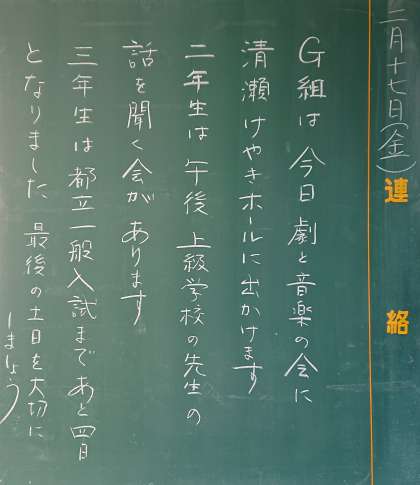 二月十七日(金)
連絡
G組は今日劇と音楽の会に
清瀬けやきホールに出かけます
二年生は午後上級学校の先生の
話を聞く会があります
三年生は都立一般入試まであと四日
となりました 最後の土日を大切に
しましょう